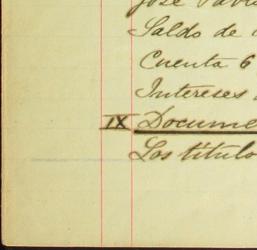 José Pabl
Saldo de
Cuenta 6
Intereses
IX Docume
Los título